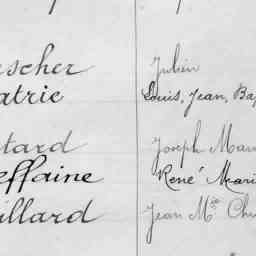 escher Julien
atrie Louis, Jean, Bap
tard Joseph Mari
effaine René Mari
illard Jean Mie Ch